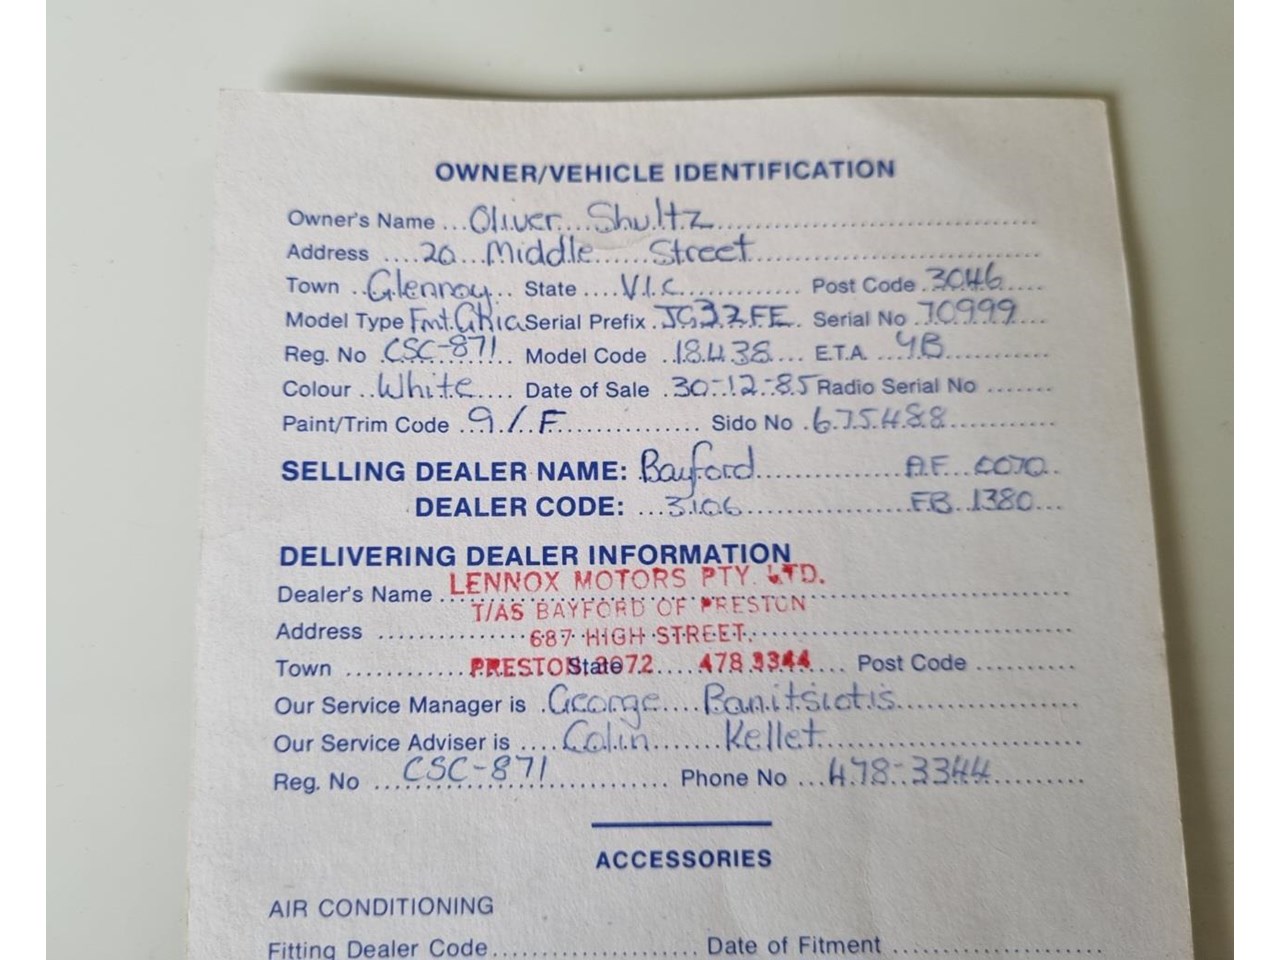 OWNER/VEHICLE IDENTIFICATION
Owner's Name ... Oliver Shultz
Address .... 20 Middle Street
Town .. Glenroy .. State .... VIC ........... Post Code . 3046 ....
Model Type Fmt. GHia Serial Prefix . JG32FE . Serial No .. 70999 ...
Reg. No . CSC-871 .. Model Code .. 18438 ... E.T.A. ... YB
Colour .. White .... Date of Sale . 30-12-85 Radio Serial No .......
Paint/Trim Code ... 9/F ................ Sido No . 675488
SELLING DEALER NAME: Bayford ............... A.F. 0070 ..
DEALER CODE: ... 3106 .................. FB 1380 ...
DELIVERING DEALER INFORMATION
Dealer's Name LENNOX MOTORS PTY. LTD.
T/AS BAYFORD OF PRESTON
Address ............... 687 HIGH STREET.
Town ............ PRESTON 3072 State .... 478 3344 ... Post Code ..........
Our Service Manager is . George .... Banitsiotis
Our Service Adviser is .... Colin ....... Kellet
Reg. No ... CSC-871 ............ Phone No ... 478-3344 .........
ACCESSORIES
AIR CONDITIONING
Fitting Dealer Code ..................... Date of Fitment .....................